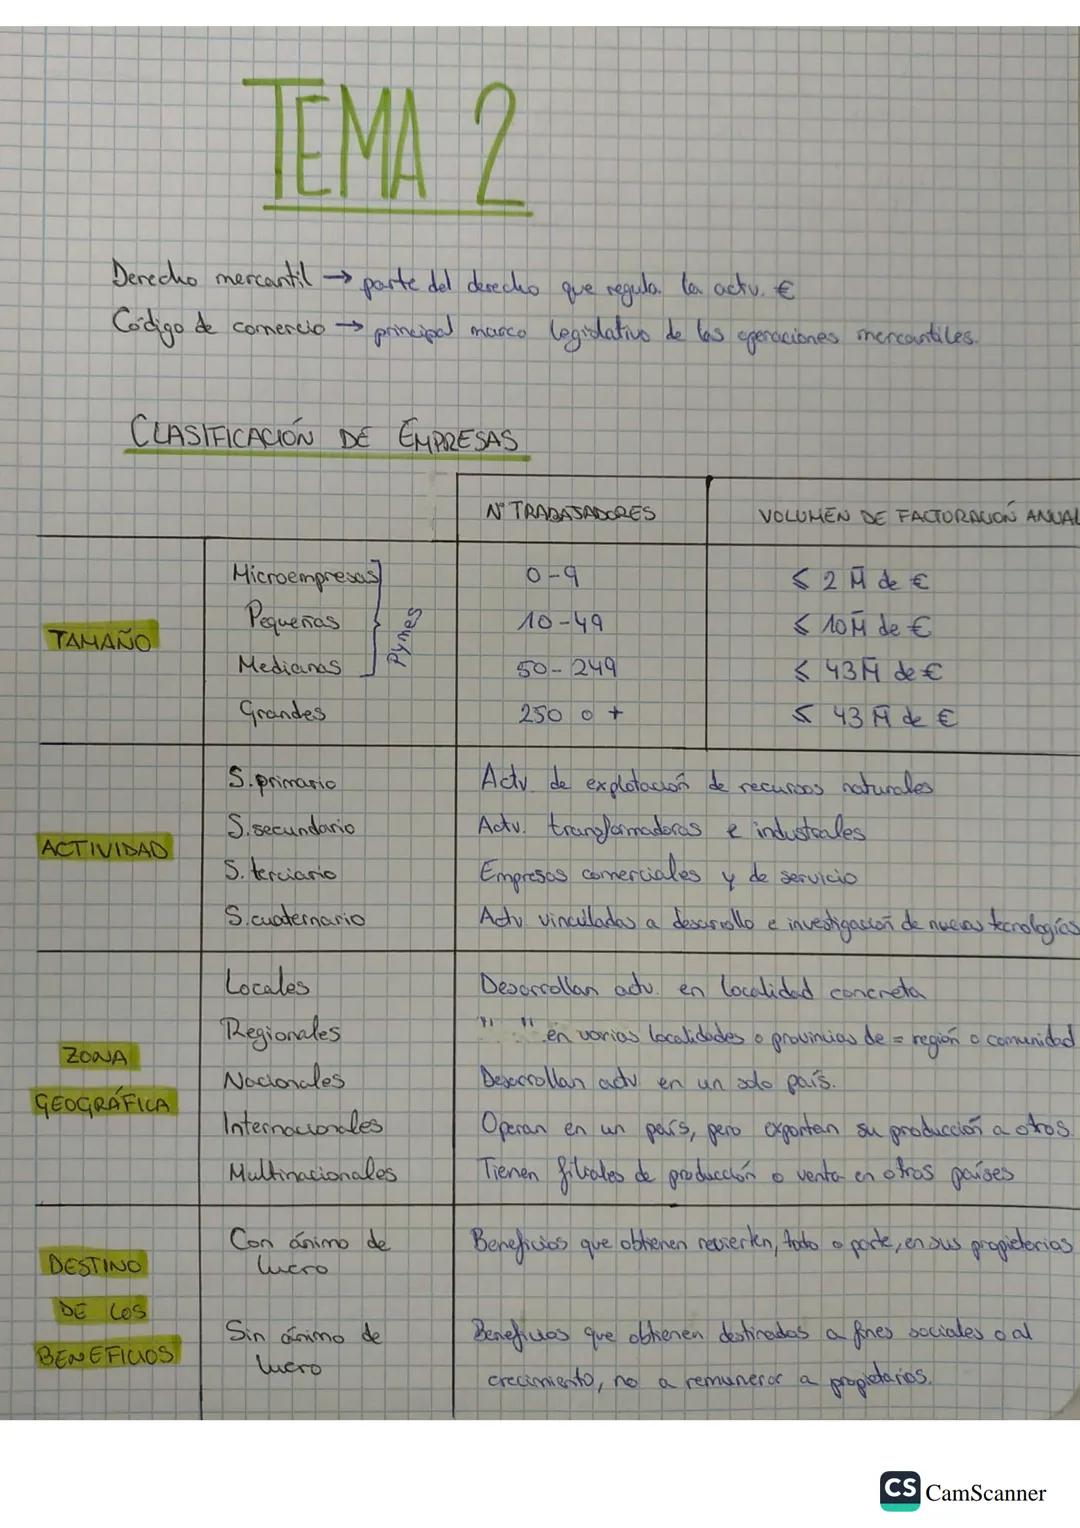 TEMA 2
Derecho mercantil → parte del derecho que regula la actv. €
Código de comercio → principal marco legislativo de las operaciones mercantiles.
CLASIFICACIÓN DE EMPRESAS
Nº TRABAJADORES VOLUMEN DE FACTURACIÓN ANUAL
TAMAÑO
Microempresas 0-9 ≤ 2 M de €
Pequeñas 10-49 ≤ 10 M de €
Medianas 50-249 ≤ 43 M de €
Pymes
Grandes 250 o + ≤ 43 M de €
ACTIVIDAD
S. primario Actv. de explotación de recursos naturales
S. secundario Actv. transformadoras e industriales
S. terciario Empresas comerciales y de servicio
S. cuaternario Actv. vinculadas a desarrollo e investigación de nuevas tecnologías
ZONA
GEOGRÁFICA
Locales Desarrollan actv. en localidad concreta
Regionales " " en varias localidades o provincias de = región o comunidad
Nacionales Desarrollan actv. en un solo país.
Internacionales Operan en un país, pero exportan su producción a otros.
Multinacionales Tienen filiales de producción o venta en otros países
DESTINO
DE LOS
BENEFICIOS
Con ánimo de Beneficios que obtienen revierten, todo o parte, en sus propietarios
lucro
Sin ánimo de Beneficios que obtienen destinados a fines sociales o al
lucro crecimiento, no a remunerar a propietarios.
CS CamScanner